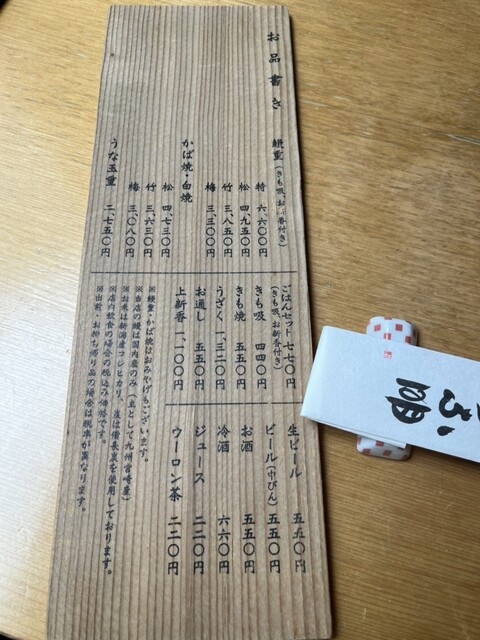 お品書き
鰻重（きも吸、お新香付き）
特 六、六〇〇円
松 四、九五〇円
竹 三、八五〇円
梅 三、三〇〇円
かば焼・白焼
松 四、七三〇円
竹 三、六三〇円
梅 三、〇八〇円
うな玉重 二、七五〇円
ごはんセット 七七〇円
（きも吸、お新香付き）
きも吸 四四〇円
きも焼 五五〇円
うざく 一、三二〇円
お通し 五五〇円
上新香 一、一〇〇円
生ビール 五五〇円
ビール（中びん） 五五〇円
お酒 五五〇円
冷酒 六六〇円
ジュース 二二〇円
ウーロン茶 二二〇円
※鰻重・かば焼はおみやげもございます。
※当店の鰻は国内産のみ（主として九州宮崎産）
※お米は新潟産コシヒカリ、炭は備長炭を使用しております。
※店内飲食の場合の税込み価格です。
※出前・お持ち帰り品の場合は税率が異なります。